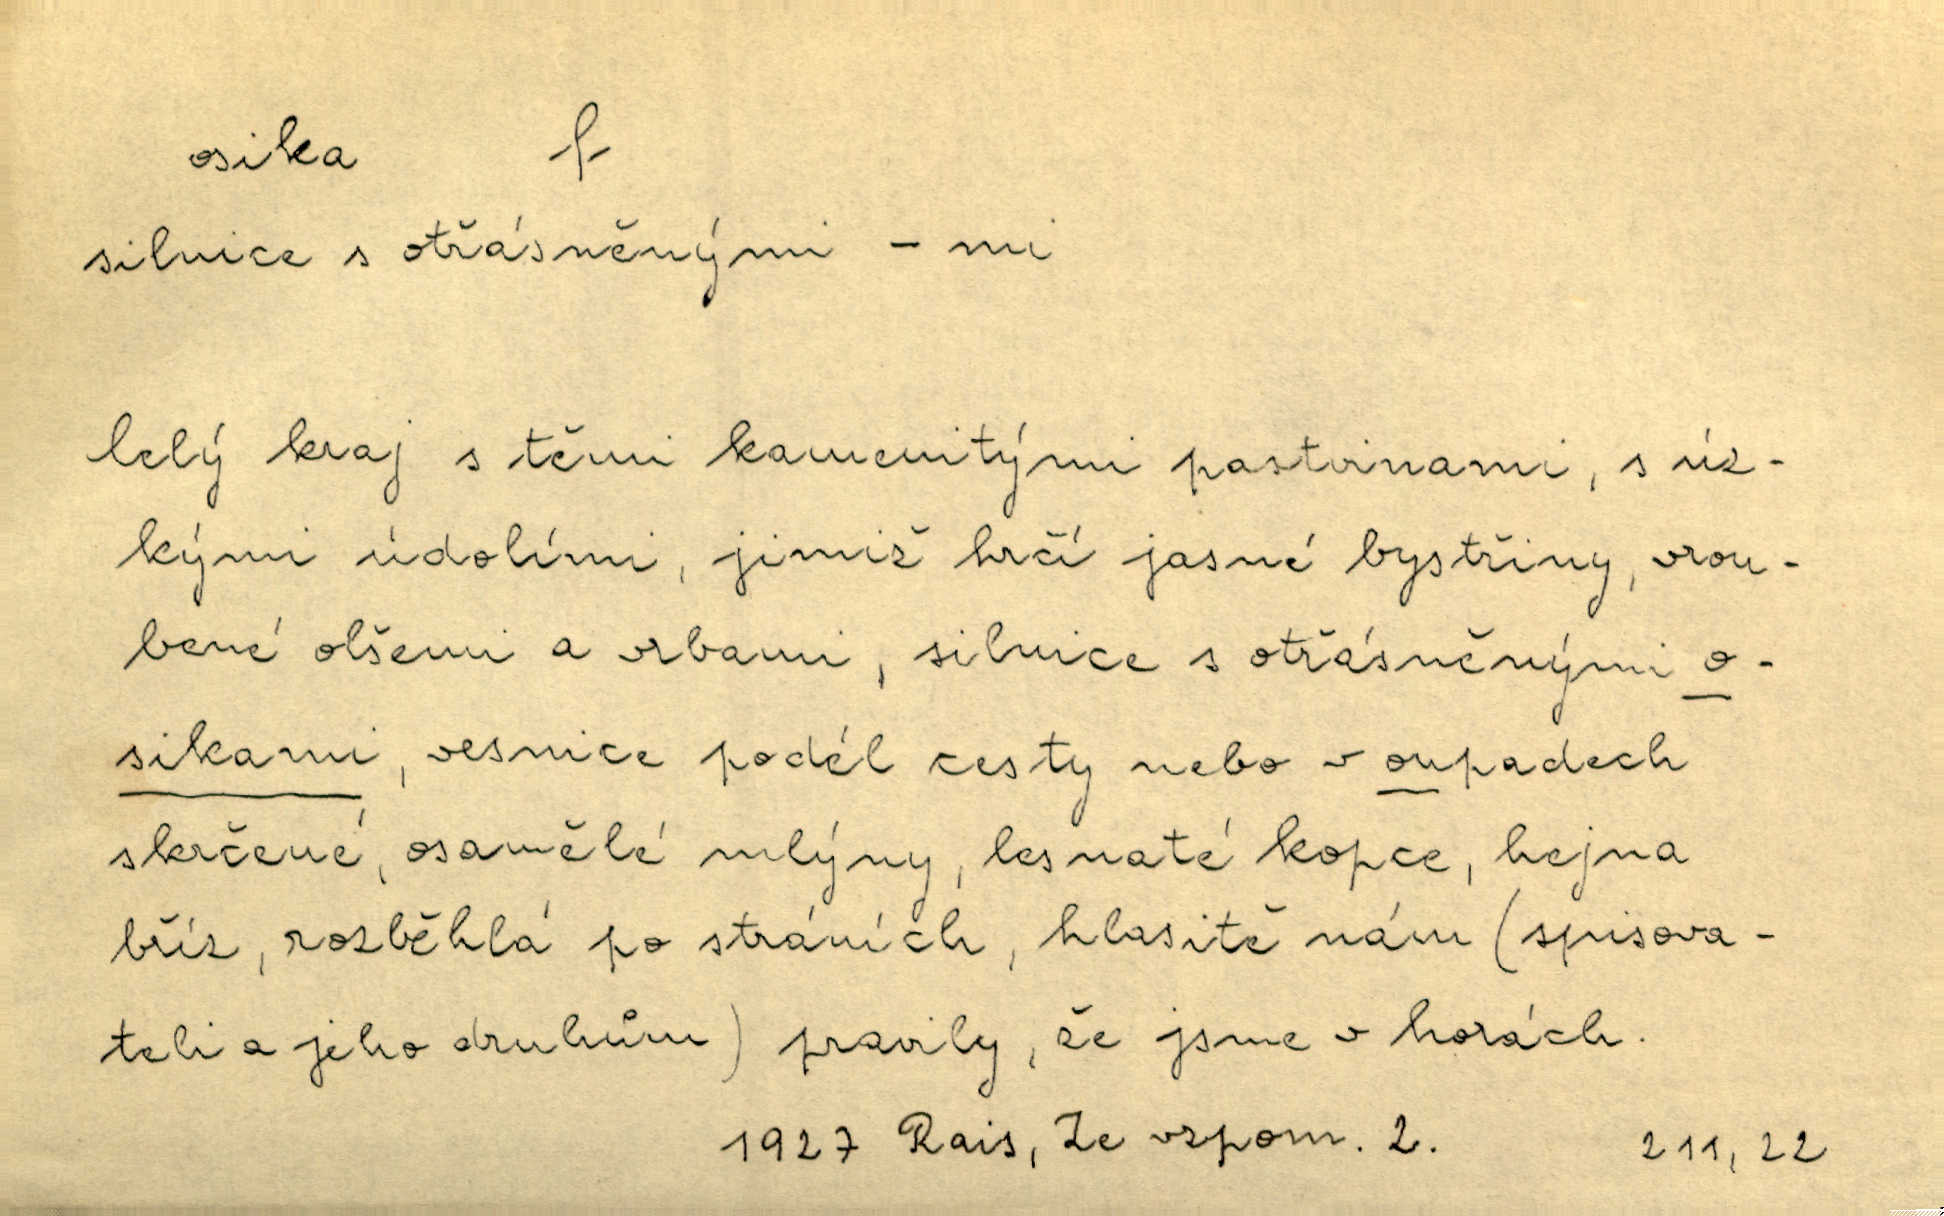 osika f
silnice s otřásněnými - mi
celý kraj s těmi kamenitými pastvinami, s úz-
kými údolími, jimiž hrčí jasné bystřiny, vrou-
bené olšemi a vrbami, silnice s otřásněnými o-
sikami, vesnice podél cesty nebo v oupadech
skrčené, osamělé mlýny, lesnaté kopce, hejna
bříz, rozběhlá po stráních, hlasitě nám (spisova-
teli a jeho druhům) pravily, že jsme v horách.
1927 Rais, Ze vzpom. 2. 211, 22